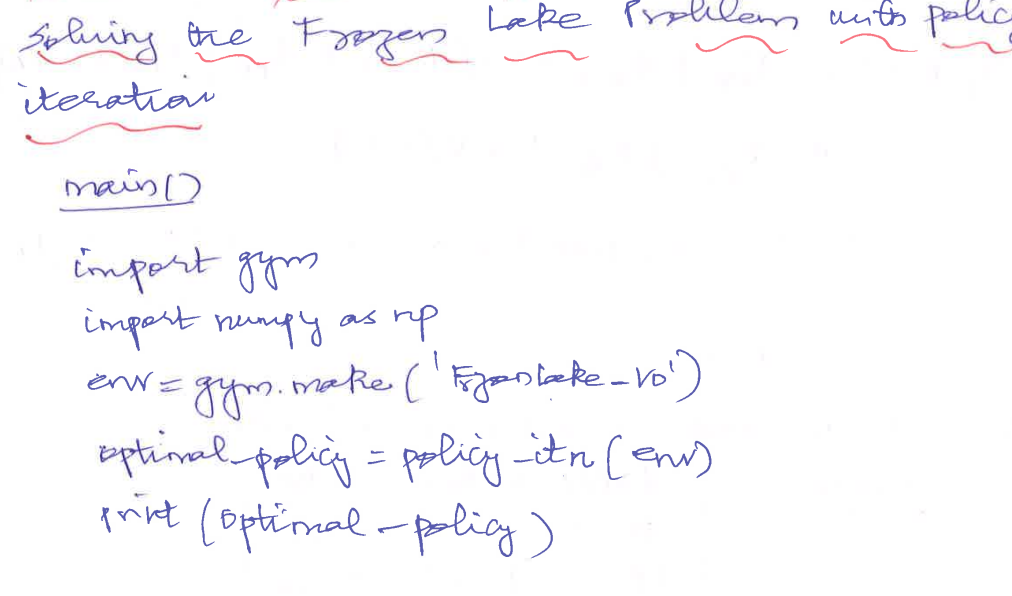 Solving the Frozen Lake Problem with polic
iteration
main()
import gym
import numpy as np
env = gym.make('FrozenLake-v0')
optimal_policy = policy_itn(env)
print (optimal_policy)